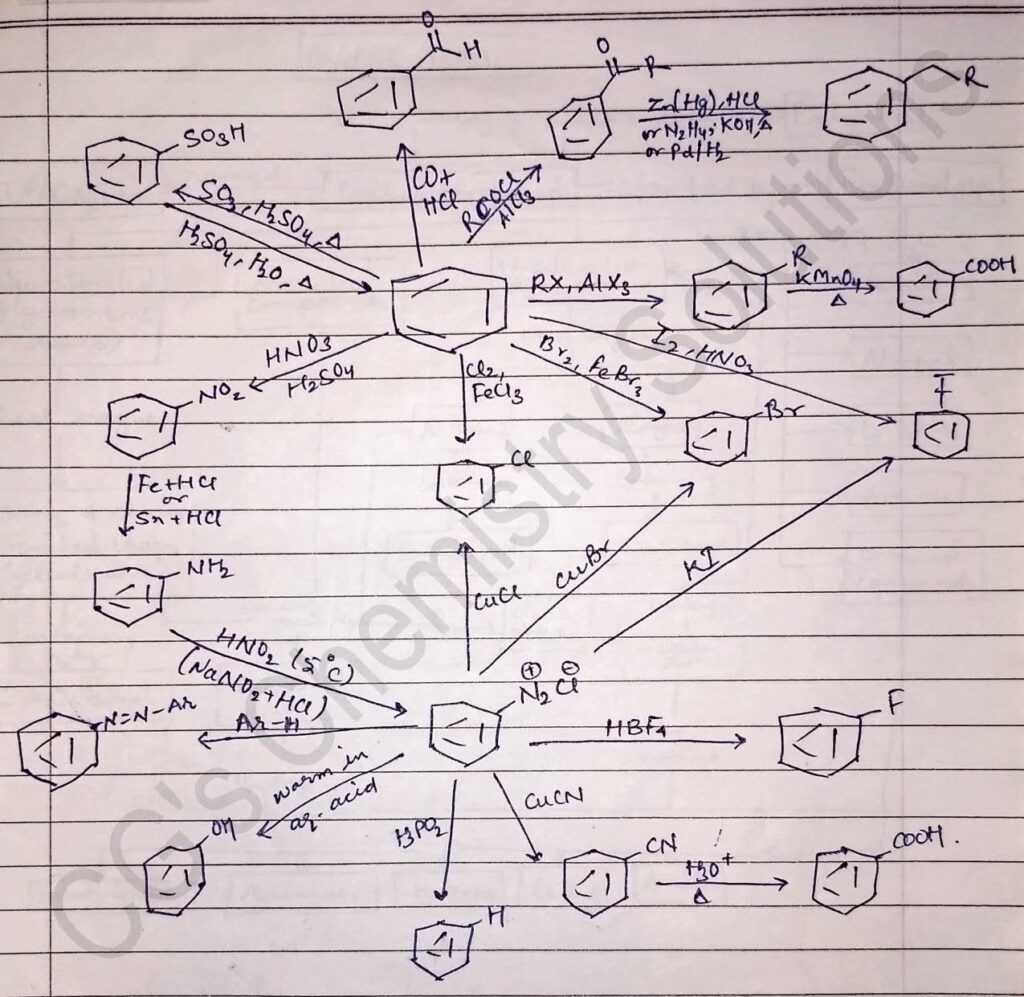 O
H
O
R
Zn(Hg), HCl
or N2H4, KOH, Δ
or Pd/H2
R
SO3H
SO3, H2SO4, Δ
H2SO4, H2O, Δ
CO+
HCl
RCOCl
AlCl3
RX, AlX3
R
KMnO4
Δ
COOH
HNO3
H2SO4
NO2
Cl2,
FeCl3
Br2, FeBr3
I2, HNO3
Br
I
Cl
Fe+HCl
or
Sn+HCl
NH2
CuCl
CuBr
KI
HNO2 (5°C)
(NaNO2+HCl)
⊕ ⊖
N2Cl
N=N-Ar
Ar-H
HBF4
F
warm in
aq. acid
OH
H3PO2
CuCN
CN
H3O+
Δ
COOH.
H
CG's Chemistry Solutions